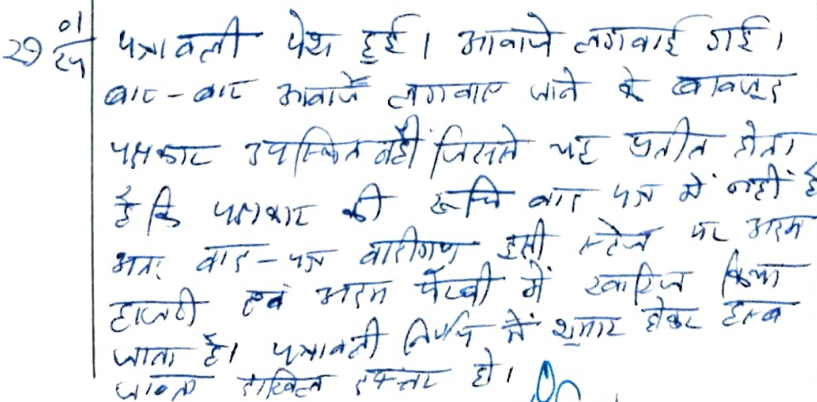 29 01/25 पत्रावली पेश हुई। आवाजे लगवाई गई।
बार-बार आवाजें लगवाए जाने के बावजूद
पक्षकार उपस्थित नहीं जिससे यह प्रतीत होता
है कि पक्षकार की रूचि वाद पत्र में नहीं है
अतः वाद-पत्र वादीगण इसी स्टेज पर अदम
हाजरी एवं अदम पैरवी में खारिज किया
जाता है। पत्रावली निर्णय में शुमार होकर
दाखिल दफ्तर हो।